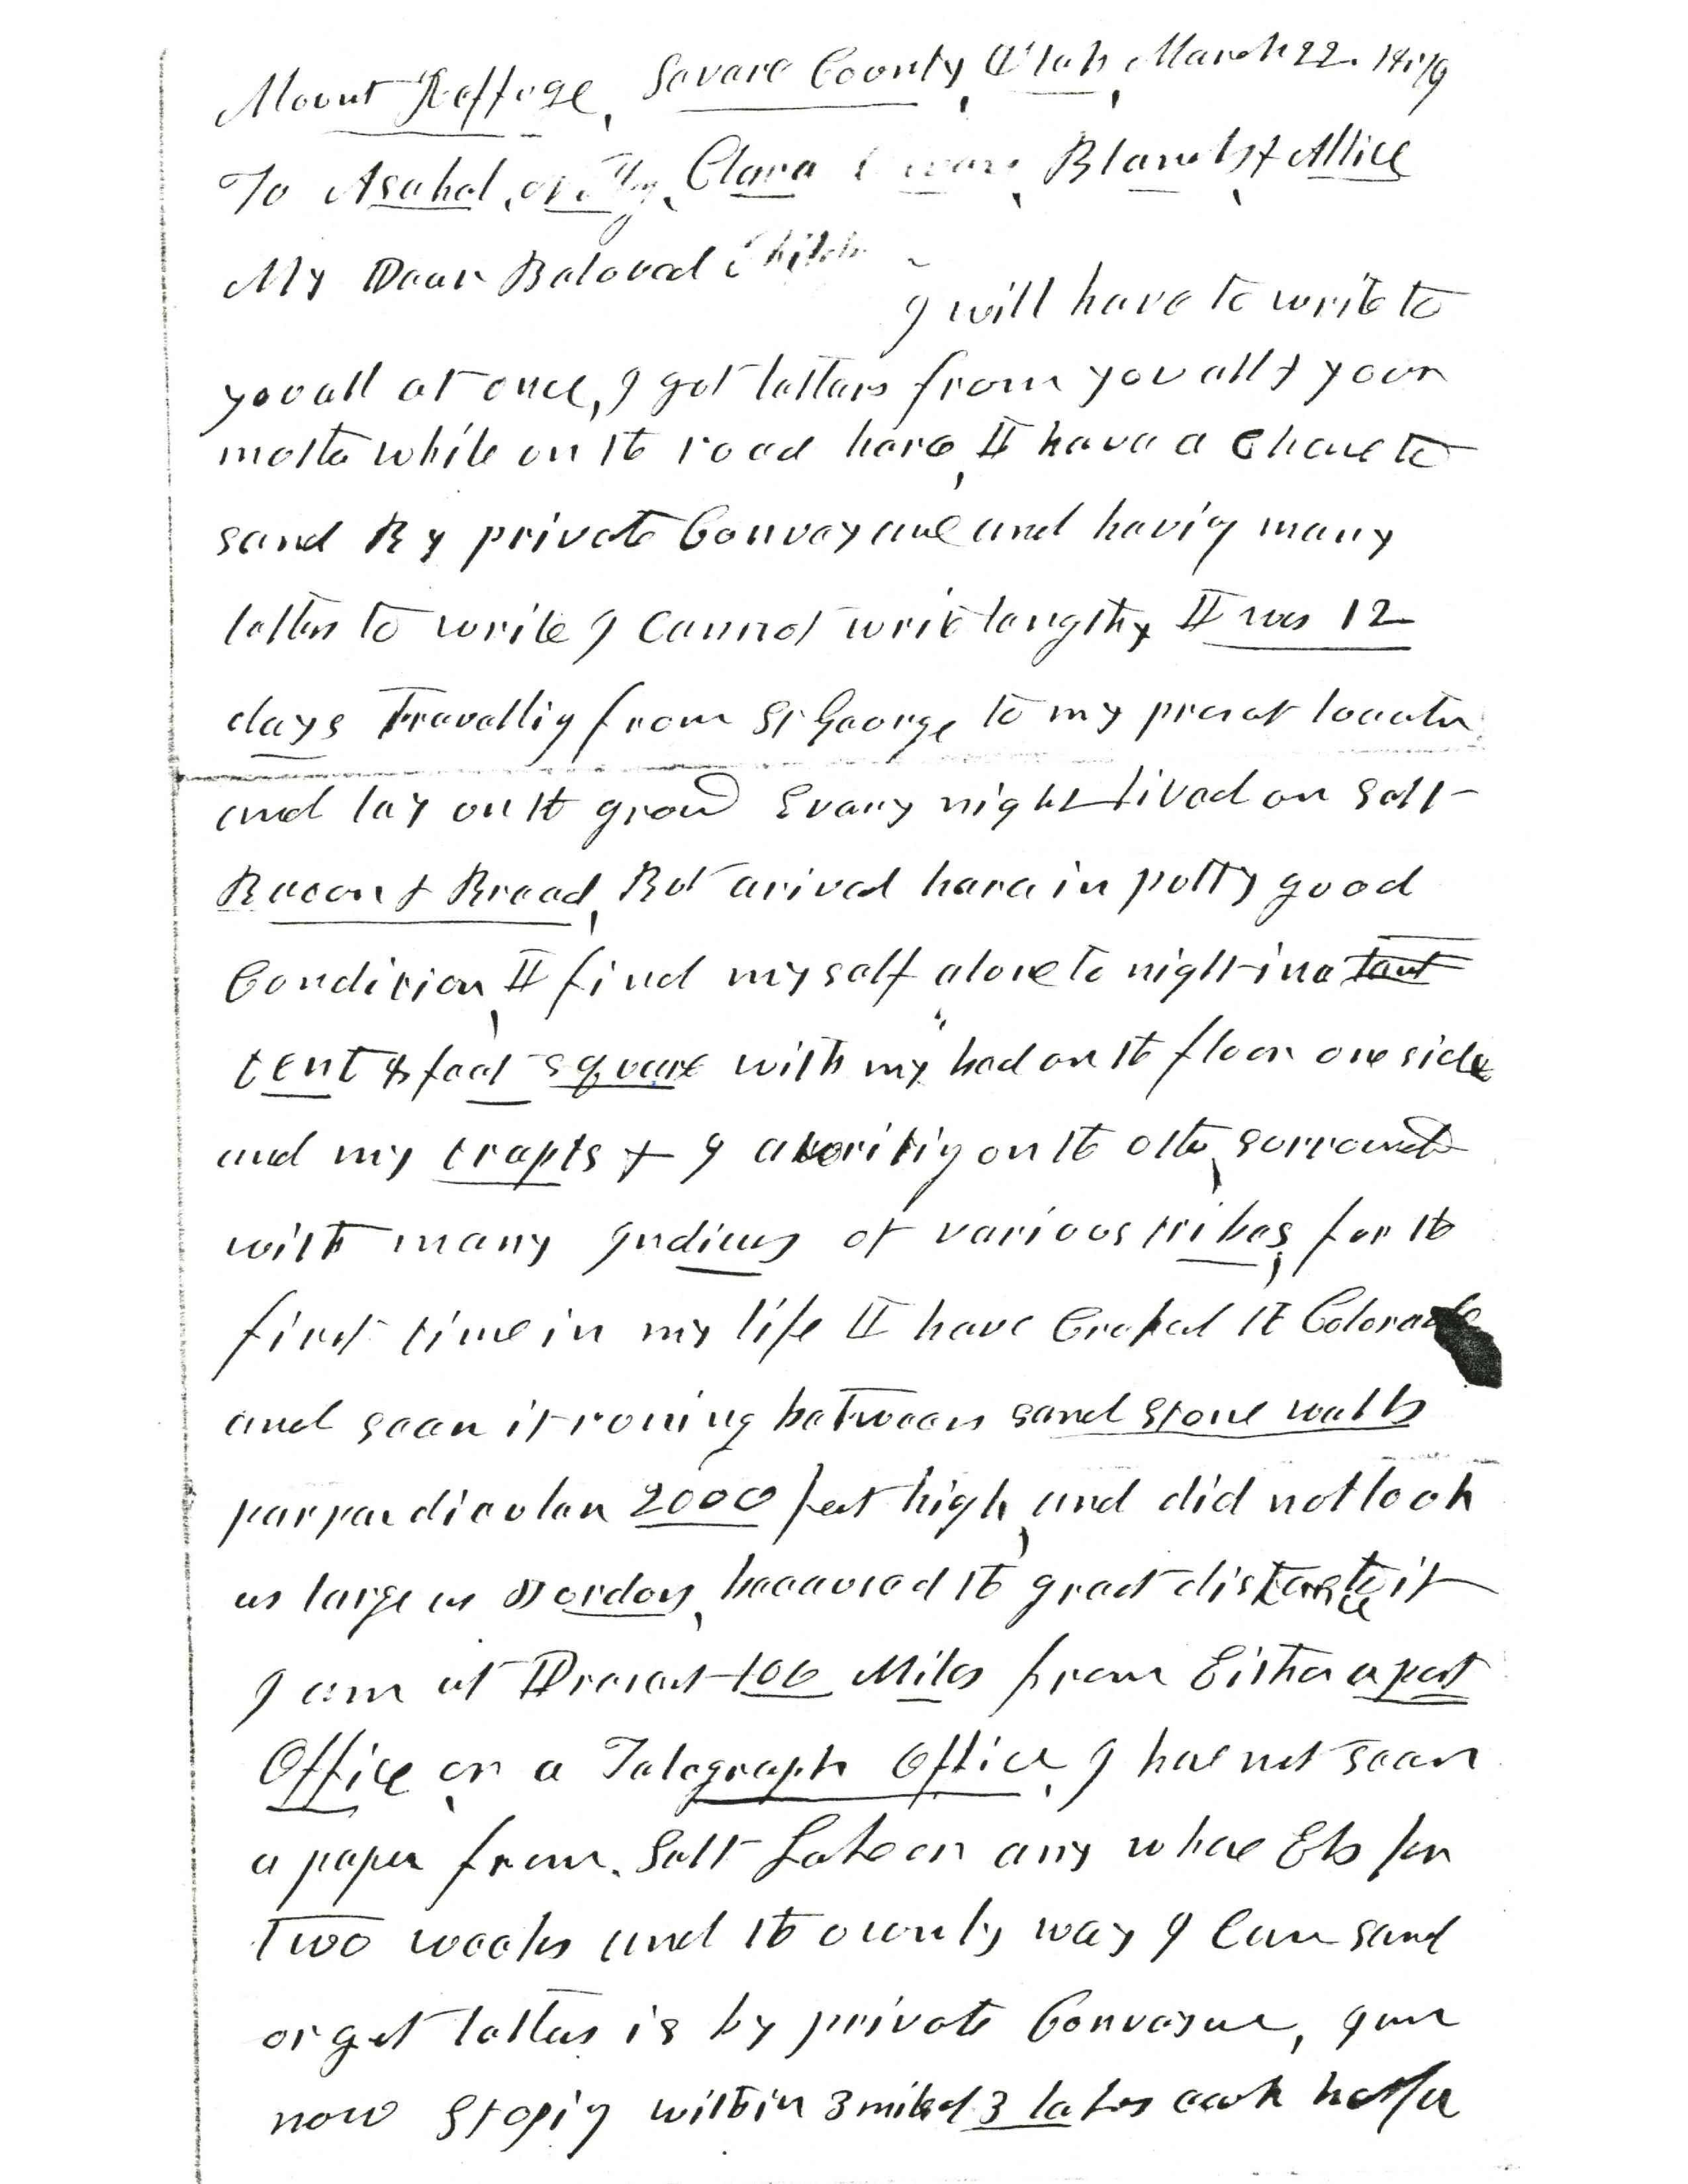 Mount Reffuge, Savare County, Utah, March 22. 1879
To Asahel, Clara Blanch & Allice
My Dear Beloved Childn
I will have to write to
you all at once, I got letters from you all & your
mother while on the road here, I have a Chance to
send By private Conveyance and having many
letters to write I cannot write lengthy I was 12
days Travelling from St George to my present locatn
and lay on the ground Every night lived on salt
Bacon & Bread, But arived here in petty good
Condition, I find myself alone to night in a tent
tent 8 feet square with my bed on the floor one side
and my trapts & I a writing on the other, surround
with many Indians of various tribes, for the
first time in my life I have Crossed the Colorado
and seen it roning between sand stone walls
perpendicular 2000 feet high, and did not look
as large as Jordon, becaused the great distance to it
I am at Present 106 Miles from Either a post
Office, or a Telegraph office, I have not seen
a paper from Salt Lake or any where Els for
Two weeks and the ounly way I Can send
or get letters is by private Conveyance, I am
now stoping within 3 miles of 3 lakes each half a